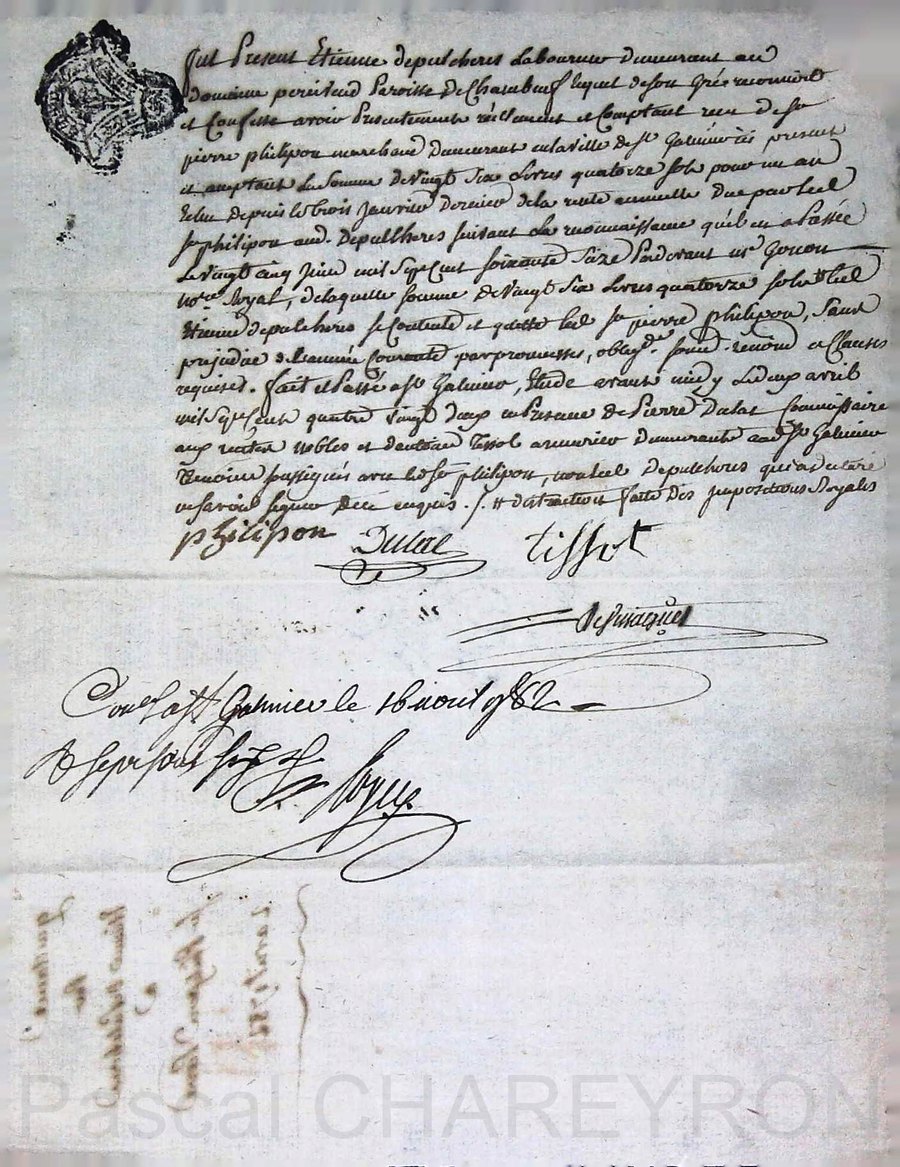 fut Present Etienne depulcheres Laboureur demeurant au
domaine Paroisse de Chambeuf lequel de son Gré reconnoit
et Confesse avoir Presentement réellement et Comptant receu de sr
pierre philipon marchand demeurant en la ville de st Galmier icy present
et acceptant la Somme de vingt Six Livres quatorze sols pour un an
Echu depuis le trois Janvier dernier de la rente annuelle due par led
sr philipon aud. Depulcheres suivant la reconnaissance qu'il en a Passée
Le vingt cinq Juin mil Sept Cent soixante Seize Pardevant me Gonon
nore Royal, de laquelle somme de vingt Six Livres quatorze sols # led
Etienne depulcheres se Contente et quitte led sr pierre philipon, sans
prejudice de l'année Courante par promesses, obligd. soumd. renond et Clauses
requises. fait et Passé a st Galmier, Etude avant midy Le deux avril
mil Sept Cent quatre vingt deux en Presence de Pierre Dulac Commissaire
aux rentes nobles et d'antoine Tissot armurier demeurants aud st Galmier
Temoins soussignés avec led sr philipon, non led Depulcheres qui a declaré
ne savoir signer de ce enquis ./. # distraction faite des impositions Royales
philipon Dulac tissot
Con. a st Galmier le 16 aout 1782
R sept sols six d
Pascal CHAREYRON